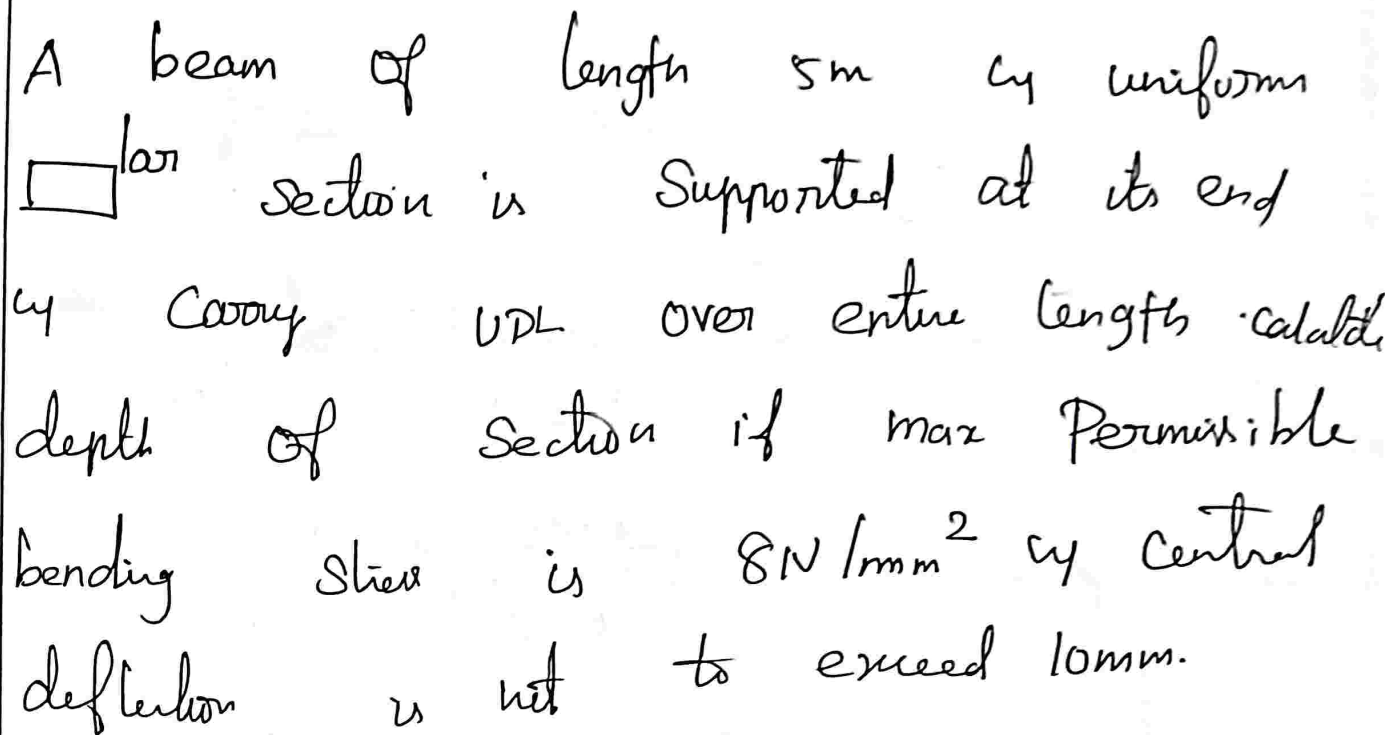 A beam of length 5m & uniform
▭lar section is supported at its end
& carry UDL over entire length .
depth of section if max Permissible
bending stress is 8N/mm² & central
deflection is not to exceed 10mm.